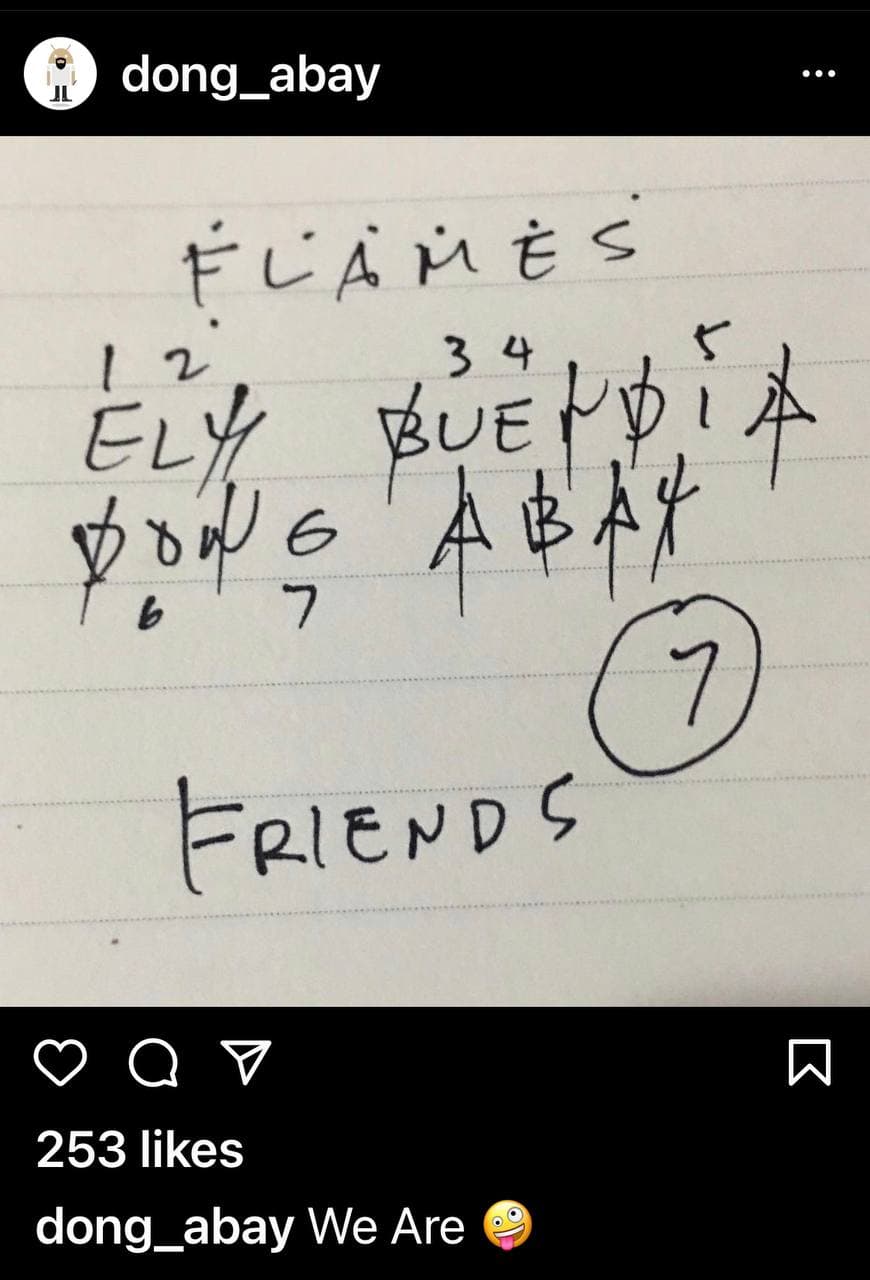 dong_abay
FLAMES
1 2 3 4 5
ELY BUENDIA
DONG ABAY
6 7
7
FRIENDS
253 likes
dong_abay We Are 🤪